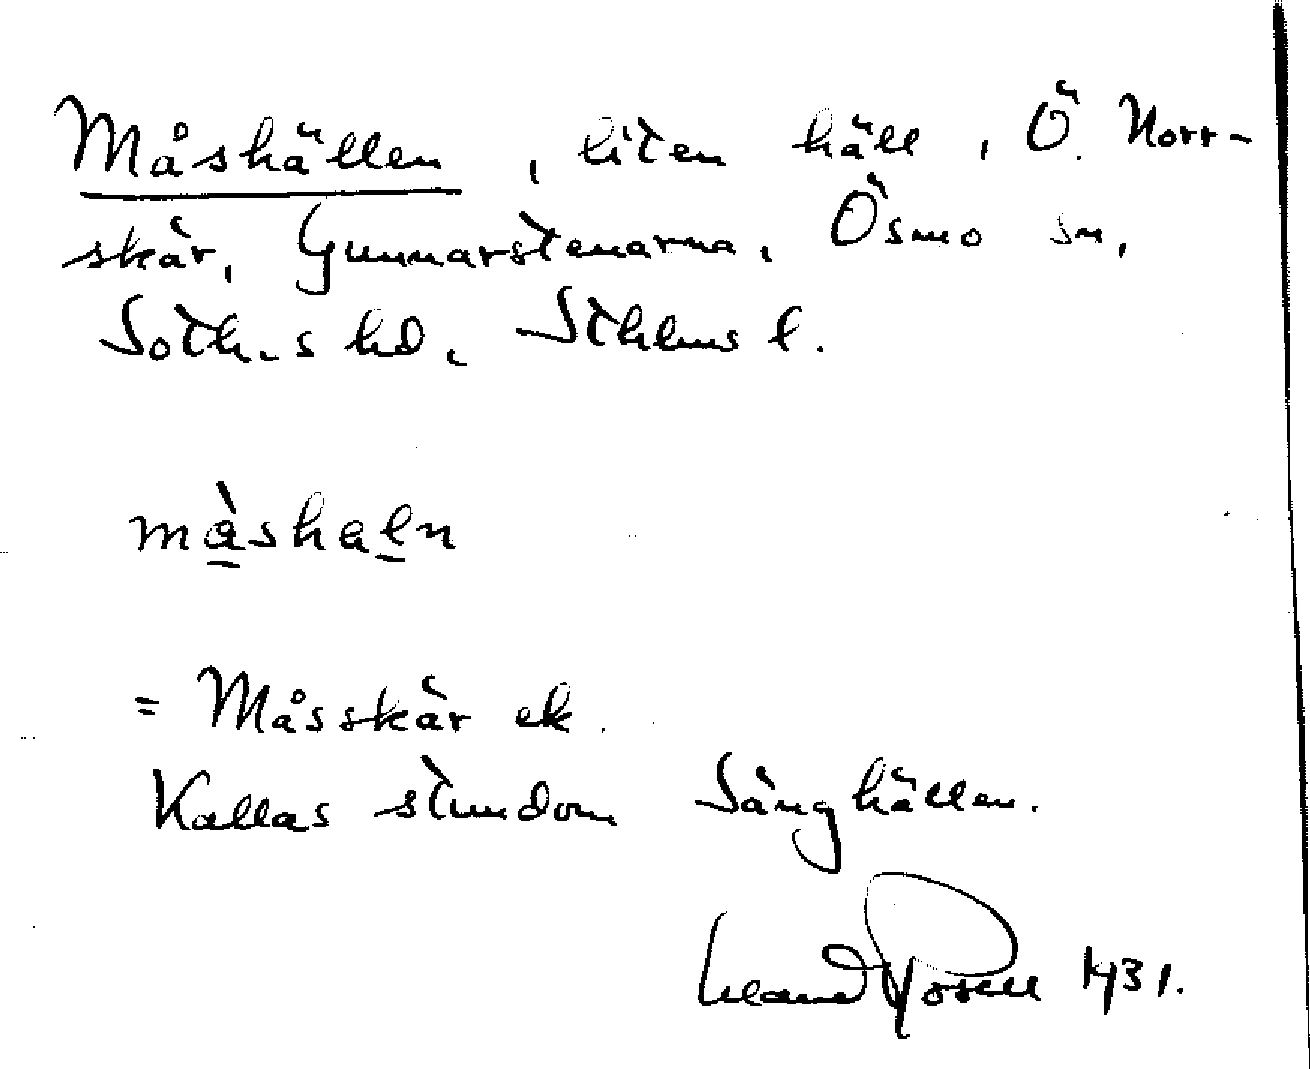 Måshällen, liten häll, Ö. Norr-
skär, Gunnarstenarna, Ösmo sn,
Soth.s hd, Sthlms l.
måshaln
= Måsskär ek.
Kallas stundom Sänghällen.
Erland Rosell 1931.